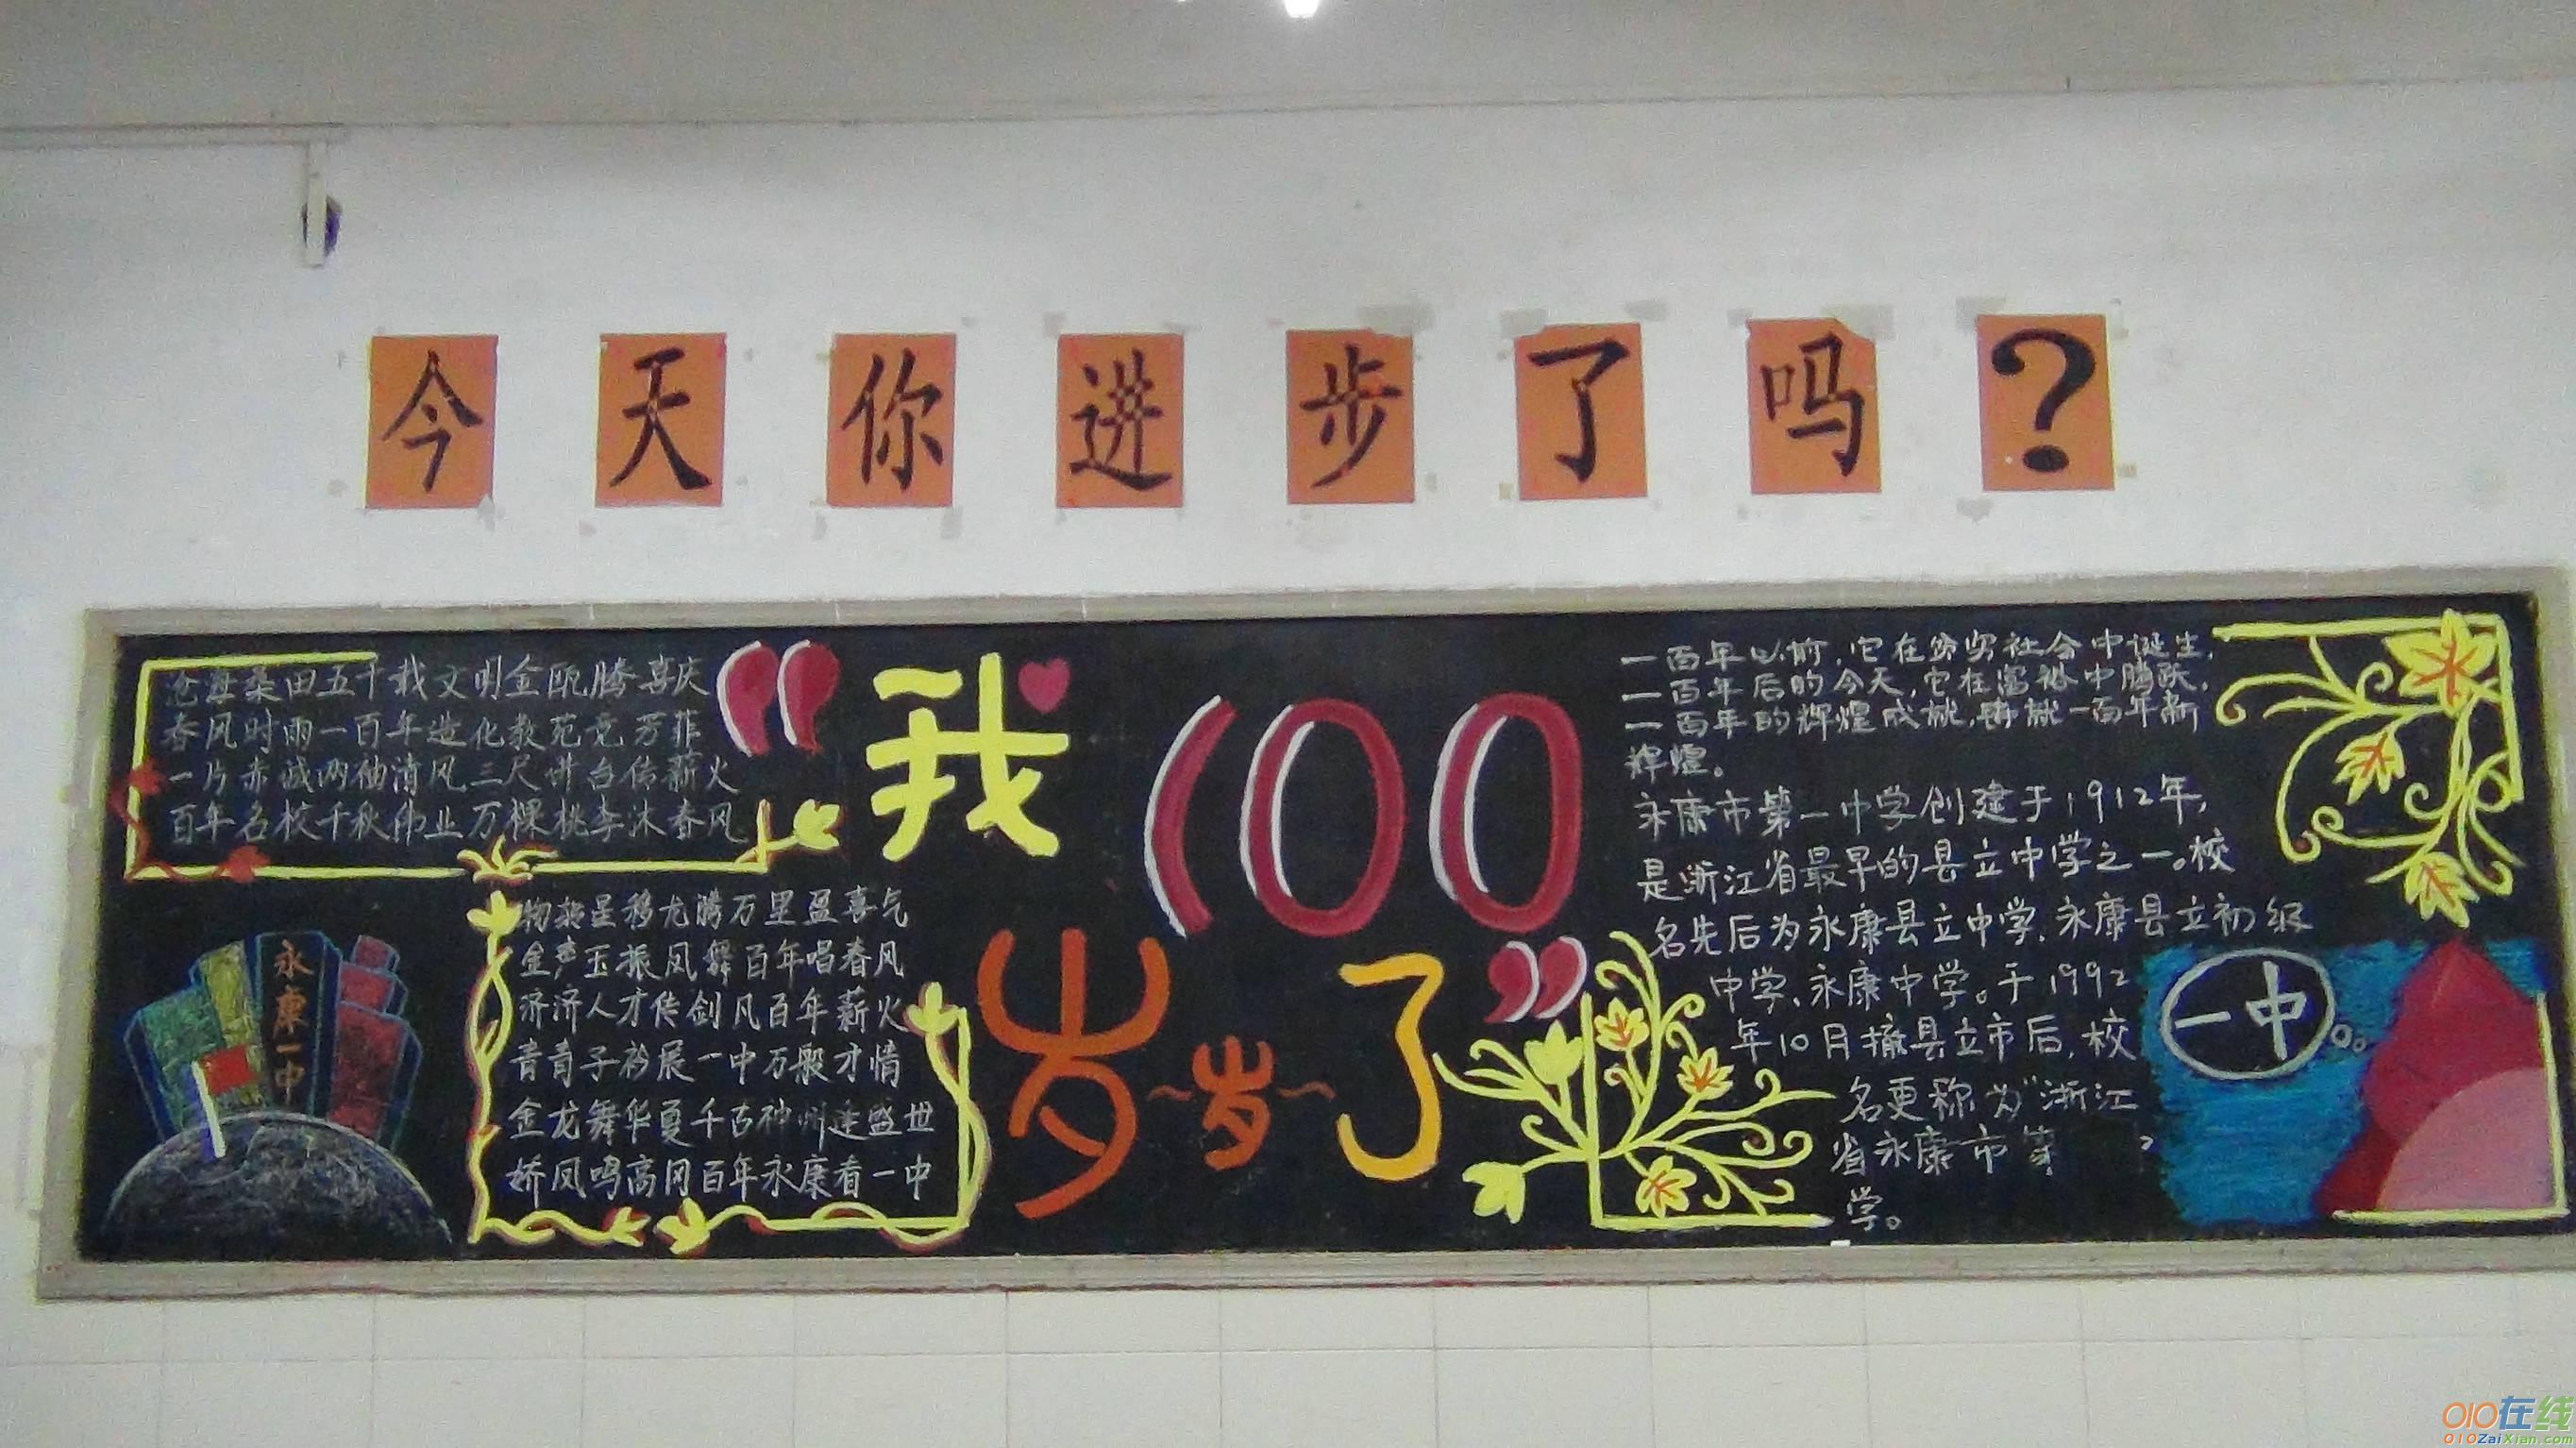 今天你进步了吗?
沧海桑田五千载文明金瓯腾喜庆
春风时雨一百年造化教苑竞芳菲
一片赤诚两袖清风三尺讲台传薪火
百年名校千秋伟业万棵桃李沐春风
物转星移龙腾万里盈喜气
金声玉振凤舞百年唱春风
济济人才传剑凡百年薪火
青青子衿展一中万般才情
金龙舞华夏千古神州逢盛世
娇凤鸣高冈百年永康看一中
永康一中
“我
100
岁~岁~了”
一百年以前,它在穷穷社会中诞生,
一百年后的今天,它在富裕中腾跃,
一百年的辉煌成就,铸就一百年新
辉煌。
永康市第一中学创建于1912年,
是浙江省最早的县立中学之一。校
名先后为永康县立中学、永康县立初级
中学、永康中学。于1992
年10月撤县立市后,校
名更称为“浙江
省永康市第
学。
一中
010在线
010ZaiXian.com